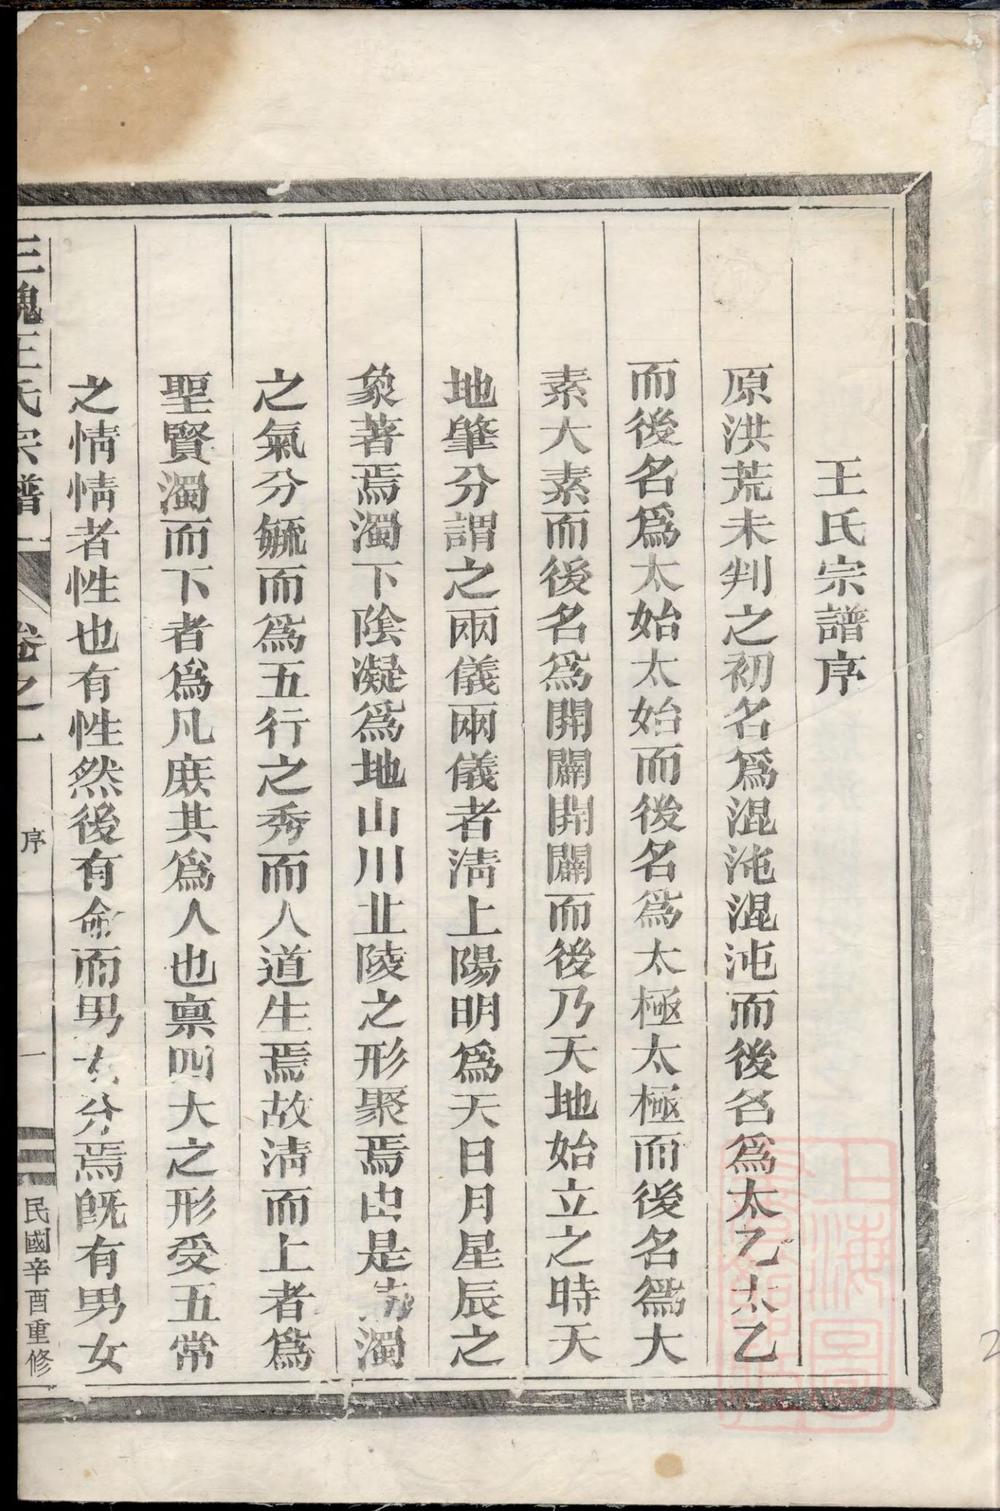 王氏宗譜序
原洪荒未判之初名爲混沌混沌而後名爲太乙太乙
而後名爲太始太始而後名爲太極太極而後名爲大
素大素而後名爲開闢開闢而後乃天地始立之時天
地肇分謂之兩儀兩儀者淸上陽明爲天日月星辰之
象著焉濁下陰凝爲地山川丠陵之形聚焉由是淸濁
之氣分毓而爲五行之秀而人道生焉故淸而上者爲
聖賢濁而下者爲凡庶其爲人也禀四大之形受五常
之情情者性也有性然後有命而男女分焉旣有男女
三槐王氏宗譜
卷之一
序
一
民國辛酉重修
上海圖